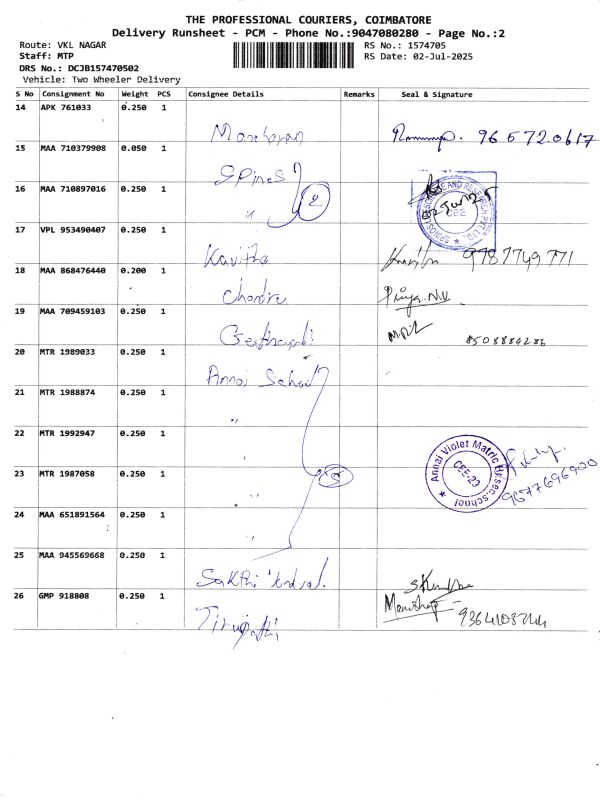 THE PROFESSIONAL COURIERS, COIMBATORE
Delivery Runsheet - PCM - Phone No.:9047080280 - Page No.:2
Route: VKL NAGAR RS No.: 1574705
Staff: MTP RS Date: 02-Jul-2025
DRS No.: DCJB157470502
Vehicle: Two Wheeler Delivery
S No Consignment No Weight PCS Consignee Details Remarks Seal & Signature
14 APK 761033 0.250 1
Manoharan 96 572 0617
15 MAA 710379908 0.050 1
Spines
16 MAA 710897016 0.250 1
" 2
17 VPL 953490407 0.250 1
Kavitha 9787749771
18 MAA 868476440 0.200 1
Chandra Priya.N.V
19 MAA 709459103 0.250 1
8508884286
20 MTR 1989033 0.250 1
Annai School
21 MTR 1988874 0.250 1
"
22 MTR 1992947 0.250 1
"
Annai Violet Matric Hr.sec.school
CEE-23
9677696900
23 MTR 1987058 0.250 1
" 5
24 MAA 651891564 0.250 1
"
25 MAA 945569668 0.250 1
Sakthi
26 GMP 918808 0.250 1
Tirupathi